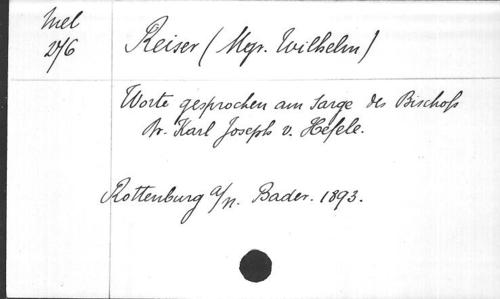 Mel
276
Reiser (Mgr. Wilhelm)
Worte gesprochen am Sarge des Bischofs
Dr. Karl Joseph v. Hefele.
Rottenburg a/n. Bader. 1893.